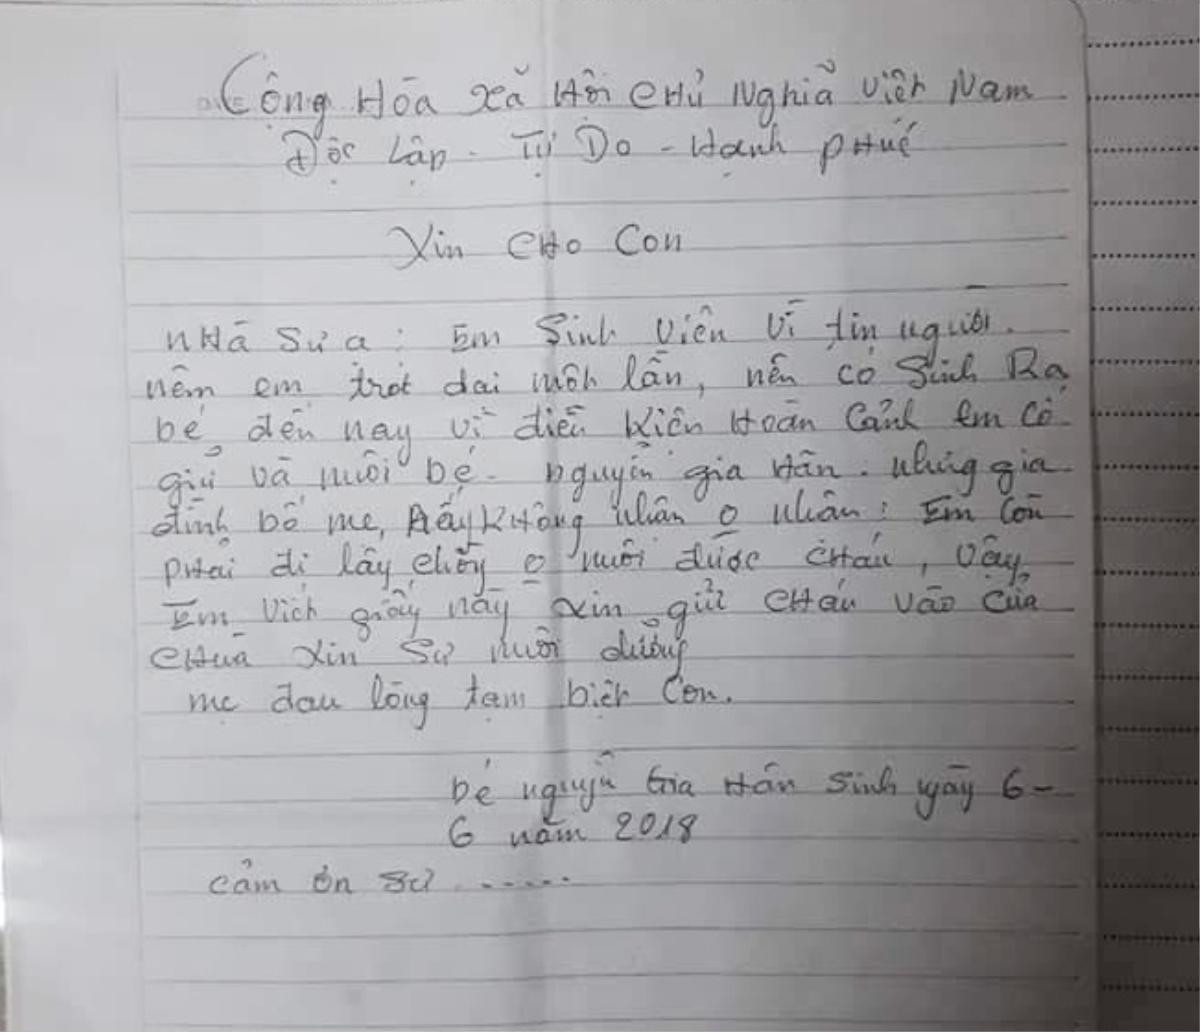 Cộng Hòa Xã Hội Chủ Nghĩa Việt Nam
Độc Lập - Tự Do - Hạnh Phúc
Xin Cho Con
Nhà Sư a: Em Sinh Viên Vì tin người.
nêm em trót dại một lần, nên có Sinh Ra
bé, đến nay vì điều Kiện Hoàn Cảnh Em Có
giữ và nuôi bé. nguyễn gia Hân. nhưng gia
đình bố mẹ, Ấy Không nhận o nhận: Em Còn
phải đi lấy chồng o nuôi được cháu, Vậy
Em Viết giấy này xin gửi Cháu Vào Cửa
Chùa Xin Sư nuôi dưỡng
mẹ đau lòng tạm biệt Con.
bé nguyễn Gia Hân Sinh ngày 6-
6 năm 2018
cảm ơn sư ......